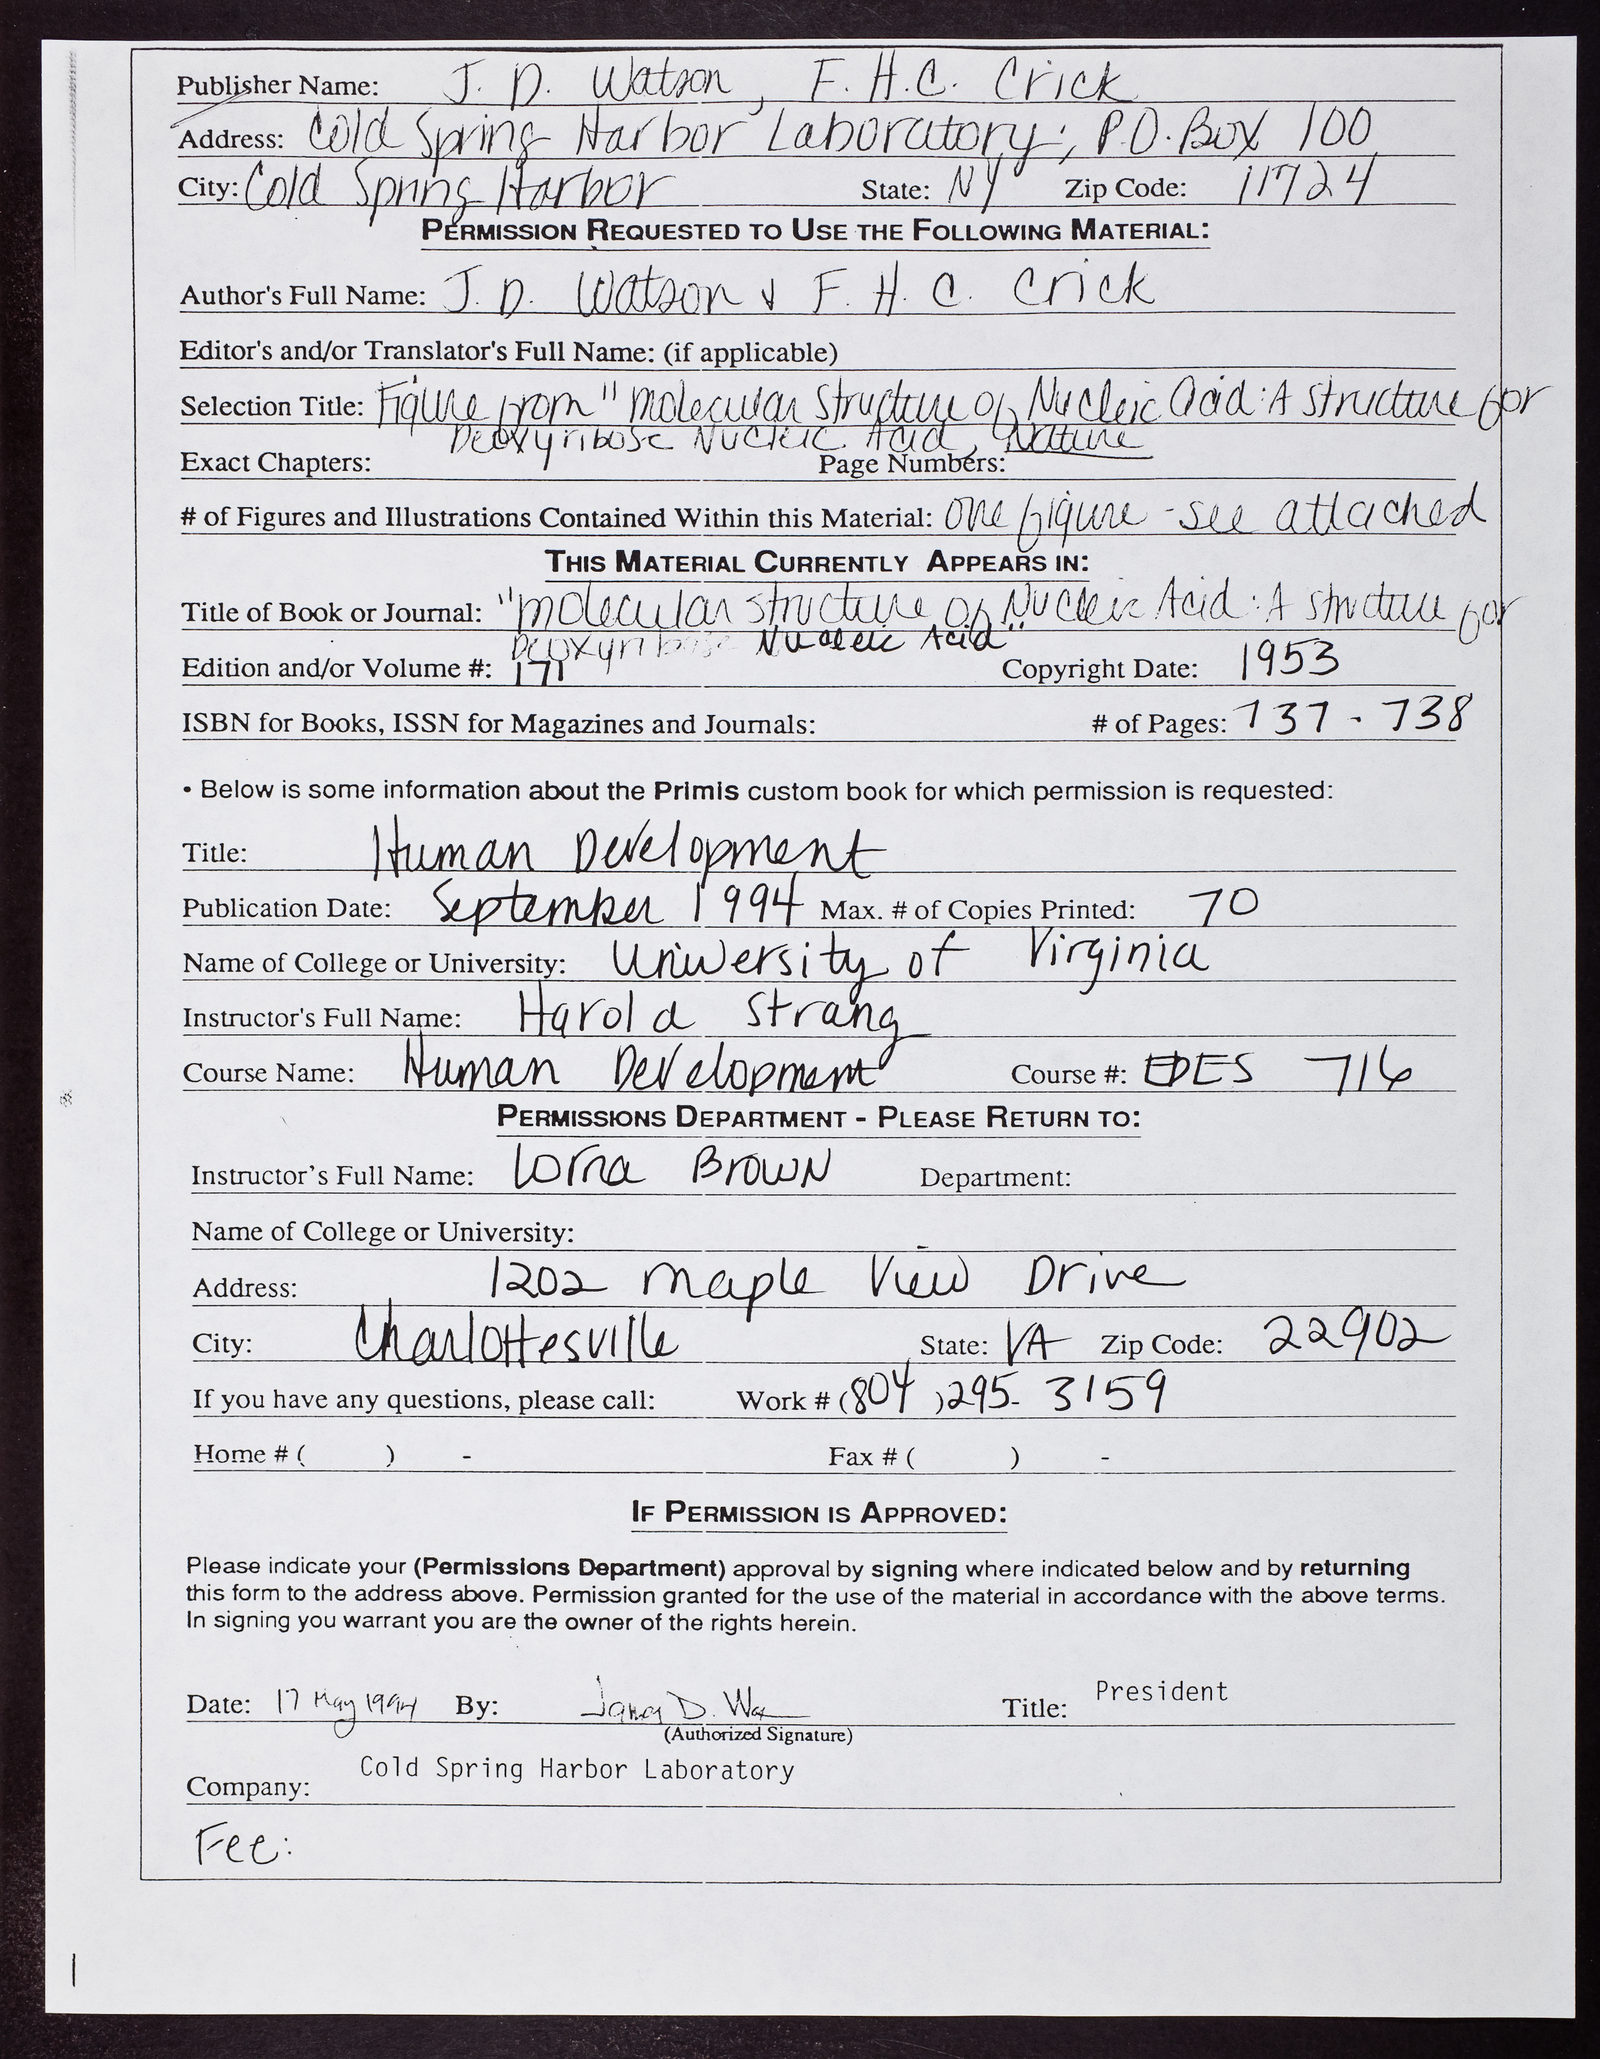 Publisher Name: J. D. Watson, F. H. C. Crick
Address: Cold Spring Harbor Laboratory; P.O. Box 100
City: Cold Spring Harbor State: NY Zip Code: 11724
PERMISSION REQUESTED TO USE THE FOLLOWING MATERIAL:
Author's Full Name: J. D. Watson & F. H. C. Crick
Editor's and/or Translator's Full Name: (if applicable)
Selection Title: Figure from "Molecular Structure of Nucleic Acid: A Structure for
Deoxyribose Nucleic Acid, Nature
Exact Chapters: Page Numbers:
# of Figures and Illustrations Contained Within this Material: one figure - see attached
THIS MATERIAL CURRENTLY APPEARS IN:
Title of Book or Journal: "Molecular Structure of Nucleic Acid: A Structure for
Deoxyribose Nucleic Acid"
Edition and/or Volume #: 171 Copyright Date: 1953
ISBN for Books, ISSN for Magazines and Journals: # of Pages: 737 - 738
• Below is some information about the Primis custom book for which permission is requested:
Title: Human Development
Publication Date: September 1994 Max. # of Copies Printed: 70
Name of College or University: University of Virginia
Instructor's Full Name: Harold Strang
Course Name: Human Development Course #: EDES 716
PERMISSIONS DEPARTMENT - PLEASE RETURN TO:
Instructor's Full Name: Lorna Brown Department:
Name of College or University:
Address: 1202 Maple View Drive
City: Charlottesville State: VA Zip Code: 22902
If you have any questions, please call: Work # (804) 295-3159
Home # ( ) - Fax # ( ) -
IF PERMISSION IS APPROVED:
Please indicate your (Permissions Department) approval by signing where indicated below and by returning
this form to the address above. Permission granted for the use of the material in accordance with the above terms.
In signing you warrant you are the owner of the rights herein.
Date: 17 May 1994 By: James D. Wa Title: President
(Authorized Signature)
Company: Cold Spring Harbor Laboratory
Fee: